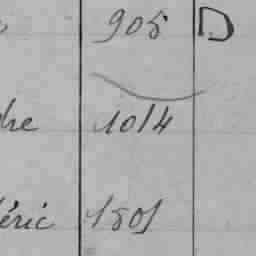 905 D
dre 1014
éric 1501